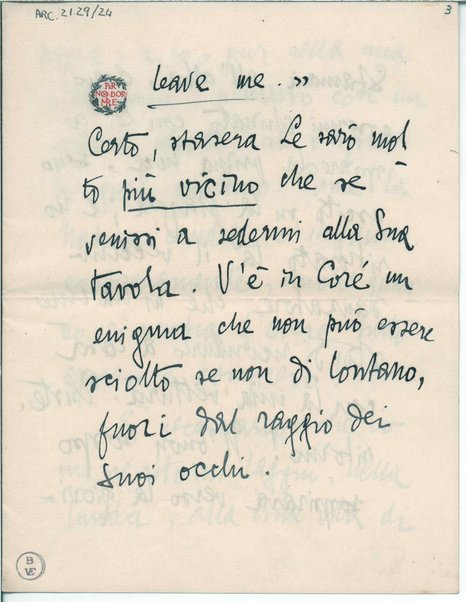 ARC. 21.29/24
3
PER
NON DOR
MIRE
leave me . »
Certo, stasera Le sarò mol
to più vicino che se
venissi a sedermi alla Sua
tavola. V'è in Core un
enigma che non può essere
sciolto se non di lontano,
fuori dal raggio dei
Suoi occhi.
B
VE